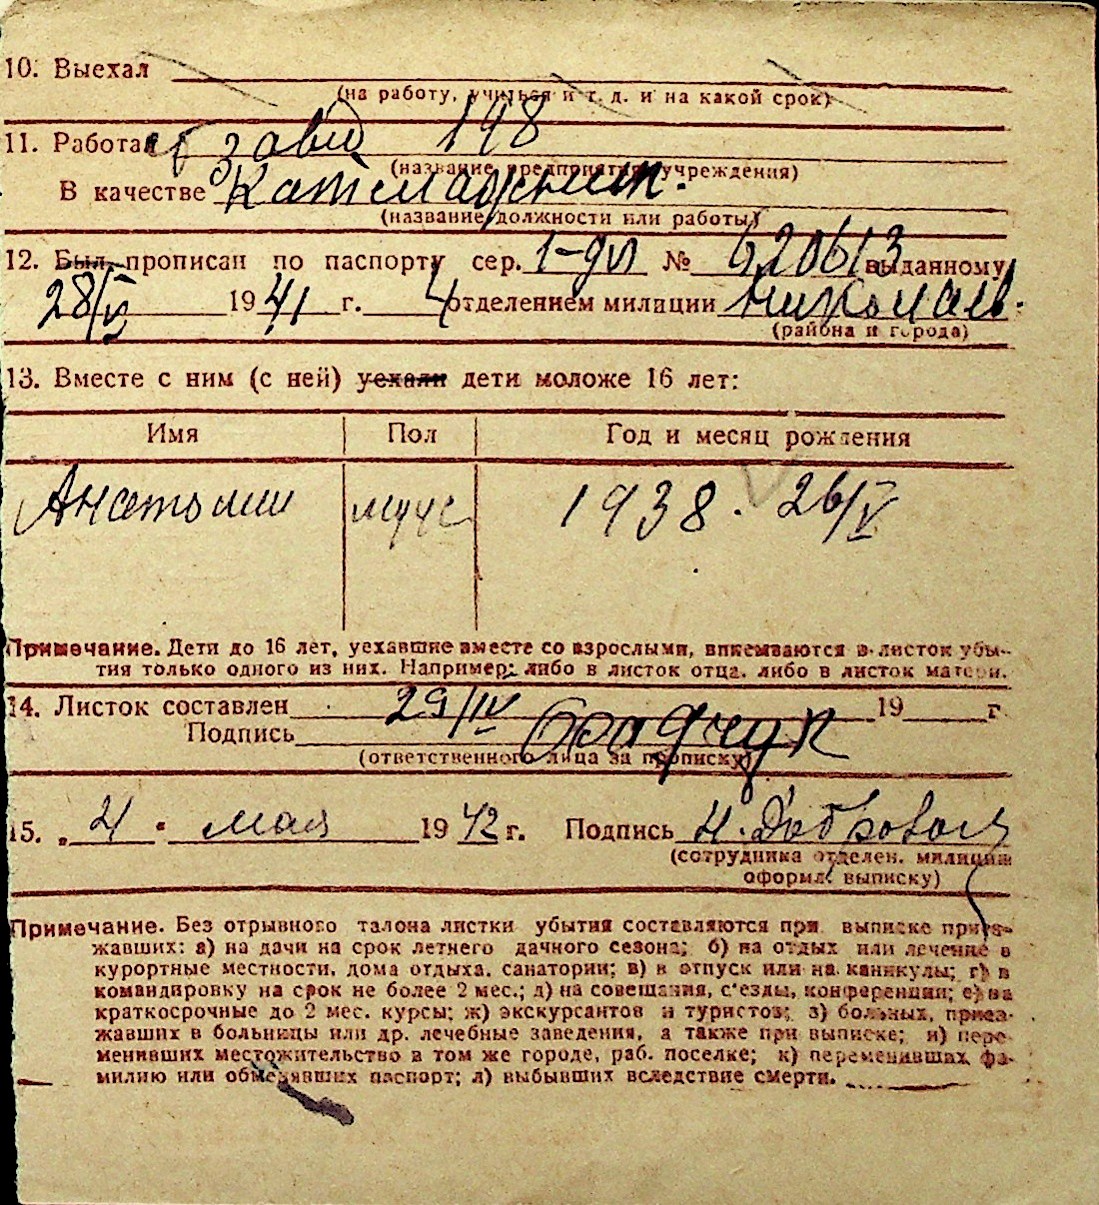 10. Выехал
(на работу, учиться и т. д. и на какой срок)
11. Работал в завод 198
(название предприятия, учреждения)
В качестве
(название должности или работы)
12. Был прописан по паспорту сер. № 620613 выданному
28/V 1941 г. 4 отделением милиции Николаев.
(района и города)
13. Вместе с ним (с ней) уехали дети моложе 16 лет:
Имя Пол Год и месяц рождения
Анатолии муж 1938. 26/V
Примечание. Дети до 16 лет, уехавшие вместе со взрослыми, вписываются в листок убы-
тия только одного из них. Например: либо в листок отца, либо в листок матери.
14. Листок составлен 29/IV 19 г.
Подпись
(ответственного лица за прописку)
15. „4" мая 1942 г. Подпись Н.
(сотрудника отделен. милиции
оформл. выписку)
Примечание. Без отрывного талона листки убытия составляются при выписке приез-
жавших: а) на дачи на срок летнего дачного сезона; б) на отдых или лечение в
курортные местности, дома отдыха, санатории; в) в отпуск или на каникулы; г) в
командировку на срок не более 2 мес.; д) на совещания, с'езды, конференции; е) на
краткосрочные до 2 мес. курсы; ж) экскурсантов и туристов; з) больных, приез-
жавших в больницы или др. лечебные заведения, а также при выписке; и) пере-
менивших местожительство в том же городе, раб. поселке; к) переменивших фа-
милию или обменявших паспорт; л) выбывших вследствие смерти.